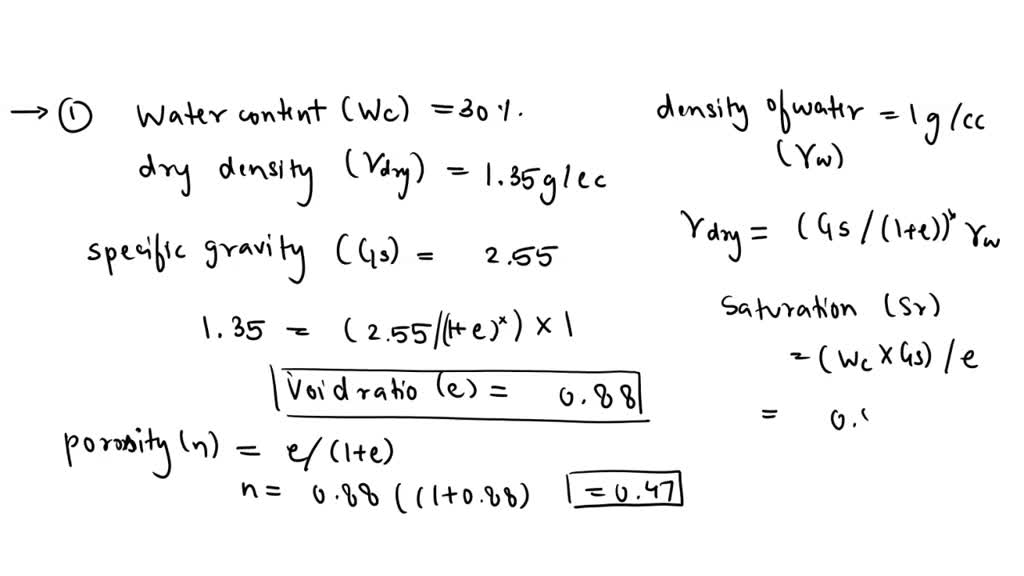 → ① Water content (Wc) = 30 %.
dry density (γdry) = 1.35 g/cc
specific gravity (Gs) = 2.55
1.35 = (2.55/(1+e)*) × 1
Void ratio (e) = 0.88
porosity (n) = e/(1+e)
n = 0.88 ((1+0.88) = 0.47
density of water = 1 g/cc
(γw)
γdry = (Gs/(1+e))* γw
Saturation (Sr)
= (Wc × Gs) / e
= 0.